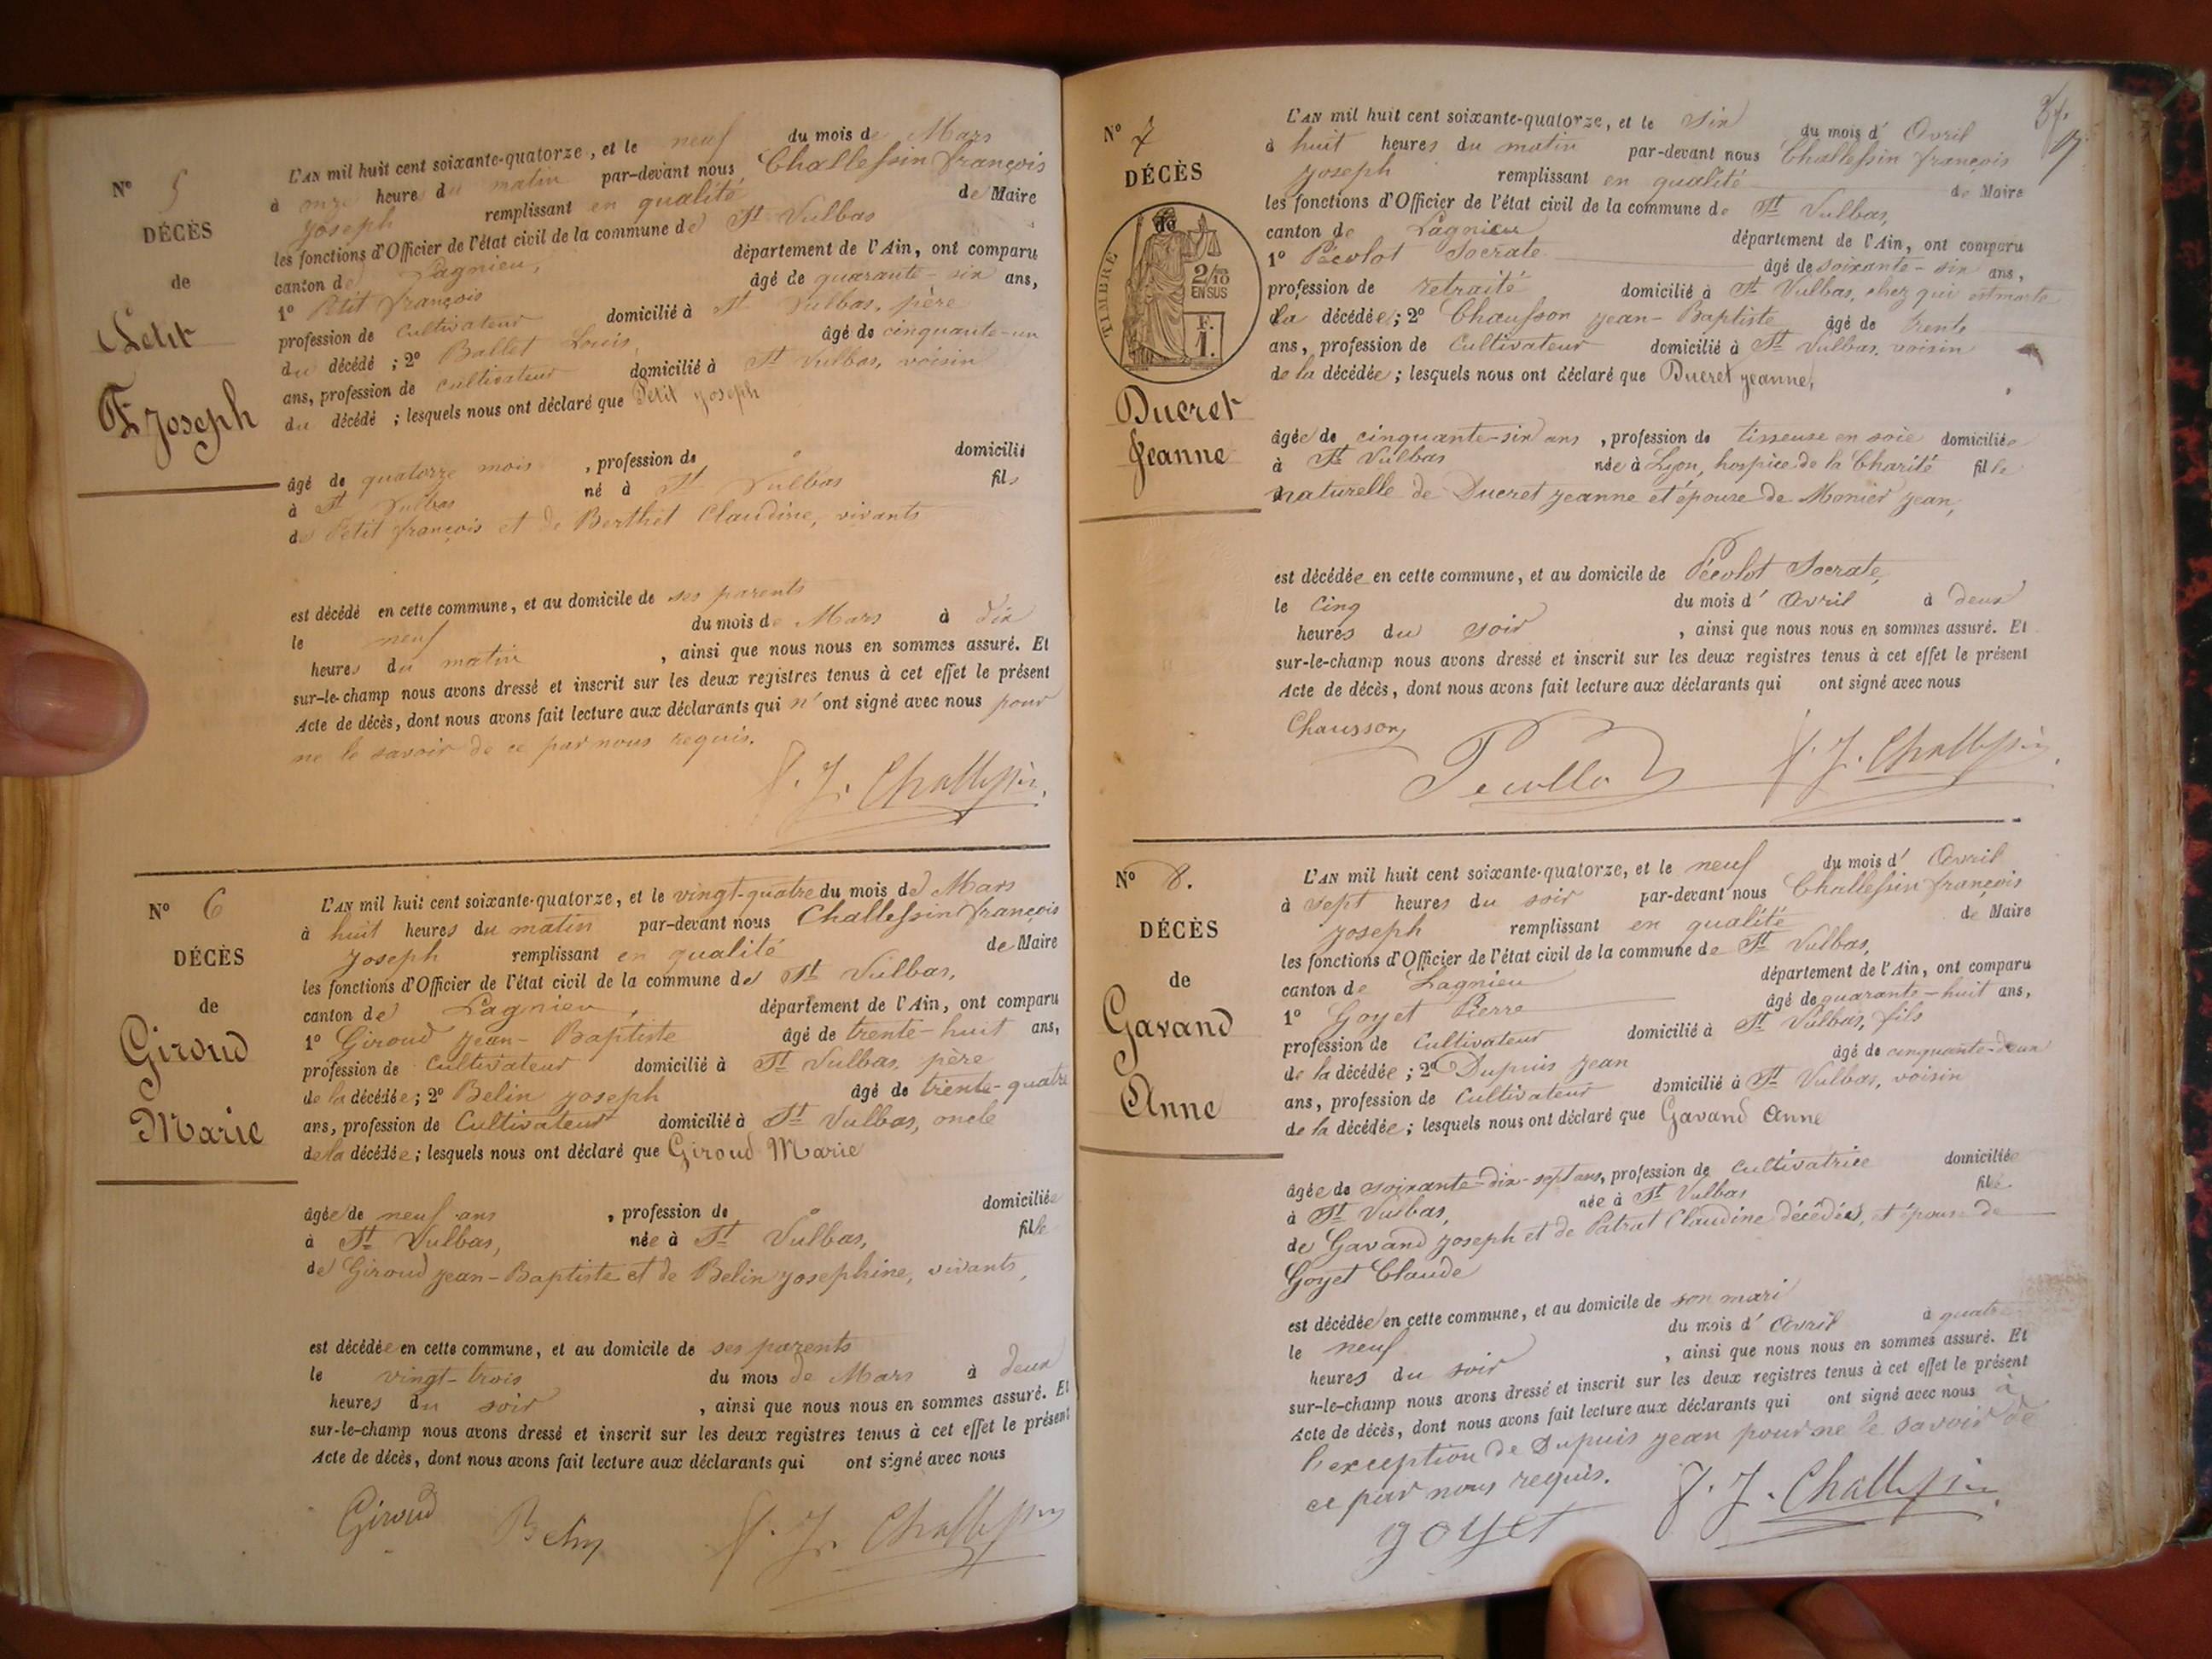 N° 5
DÉCÈS
de
Petit
F. Joseph
L'AN mil huit cent soixante-quatorze, et le neuf du mois de Mars
à onze heures du matin par-devant nous Challessin françois
Joseph remplissant en qualité de Maire
les fonctions d'Officier de l'état civil de la commune de St Vulbas
canton de Lagnieu, département de l'Ain, ont comparu
1° Petit françois âgé de quarante-six ans,
profession de Cultivateur domicilié à St Vulbas, père
du décédé ; 2° Ballet Louis, âgé de cinquante-un
ans, profession de cultivateur domicilié à St Vulbas, voisin
du décédé ; lesquels nous ont déclaré que Petit Joseph
âgé de quatorze mois , profession de domicilié
à St Vulbas né à St Vulbas fils
de Petit françois et de Berthet Claudine, vivants
est décédé en cette commune, et au domicile de ses parents
le neuf du mois de Mars à dix
heures du matin , ainsi que nous nous en sommes assuré. Et
sur-le-champ nous avons dressé et inscrit sur les deux registres tenus à cet effet le présent
Acte de décès, dont nous avons fait lecture aux déclarants qui n'ont signé avec nous pour
ne le savoir de ce par nous requis.
f. J. Challessin
N° 6
DÉCÈS
de
Giroud
Marie
L'AN mil huit cent soixante-quatorze, et le vingt-quatre du mois de Mars
à huit heures du matin par-devant nous Challessin françois
Joseph remplissant en qualité de Maire
les fonctions d'Officier de l'état civil de la commune de St Vulbas,
canton de Lagnieu, département de l'Ain, ont comparu
1° Giroud jean-Baptiste âgé de trente-huit ans,
profession de Cultivateur domicilié à St Vulbas, père
de la décédée ; 2° Belin joseph âgé de trente-quatre
ans, profession de Cultivateur domicilié à St Vulbas, oncle
de la décédée ; lesquels nous ont déclaré que Giroud Marie
âgée de neuf ans , profession de domiciliée
à St Vulbas, née à St Vulbas, fille
de Giroud jean-Baptiste et de Belin josephine, vivants,
est décédée en cette commune, et au domicile de ses parents
le vingt-trois du mois de Mars à deux
heures du soir , ainsi que nous nous en sommes assuré. Et
sur-le-champ nous avons dressé et inscrit sur les deux registres tenus à cet effet le présent
Acte de décès, dont nous avons fait lecture aux déclarants qui ont signé avec nous
Giroud Belin f. J. Challessin
N° 7
DÉCÈS
de
TIMBRE
2/10
EN SUS
F.
1.
Ducret
Jeanne
L'AN mil huit cent soixante-quatorze, et le six du mois d' Avril
à huit heures du matin par-devant nous Challessin françois
joseph remplissant en qualité de Maire
les fonctions d'Officier de l'état civil de la commune de St Vulbas,
canton de Lagnieu département de l'Ain, ont comparu
1° Pécolot Socrate âgé de soixante-six ans,
profession de retraité domicilié à St Vulbas, chez qui est morte
la décédée ; 2° Chausson jean-Baptiste âgé de trente
ans, profession de Cultivateur domicilié à St Vulbas, voisin
de la décédée ; lesquels nous ont déclaré que Ducret jeanne,
âgée de cinquante-six ans , profession de tisseuse en soie domiciliée
à St Vulbas née à Lyon, hospice de la Charité fille
naturelle de Ducret jeanne et épouse de Monier jean,
est décédée en cette commune, et au domicile de Pécolot Socrate,
le Cinq du mois d' Avril à deux
heures du soir , ainsi que nous nous en sommes assuré. Et
sur-le-champ nous avons dressé et inscrit sur les deux registres tenus à cet effet le présent
Acte de décès, dont nous avons fait lecture aux déclarants qui ont signé avec nous
Chausson
f. J. Challessin
N° 8.
DÉCÈS
de
Gavand
Anne
L'AN mil huit cent soixante-quatorze, et le neuf du mois d' Avril
à sept heures du soir par-devant nous Challessin françois
joseph remplissant en qualité de Maire
les fonctions d'Officier de l'état civil de la commune de St Vulbas,
canton de Lagnieu département de l'Ain, ont comparu
1° Goyet Pierre âgé de quarante-huit ans,
profession de Cultivateur domicilié à St Vulbas, fils
de la décédée ; 2° Dupuis jean âgé de cinquante-deux
ans, profession de Cultivateur domicilié à St Vulbas, voisin
de la décédée ; lesquels nous ont déclaré que Gavand Anne
âgée de soixante-dix-sept ans, profession de Cultivatrice domiciliée
à St Vulbas, née à St Vulbas fille
de Gavand joseph et de Patrat Claudine décédés, et épouse de
Goyet Claude
est décédée en cette commune, et au domicile de son mari
le neuf du mois d' Avril à quatre
heures du soir , ainsi que nous nous en sommes assuré. Et
sur-le-champ nous avons dressé et inscrit sur les deux registres tenus à cet effet le présent
Acte de décès, dont nous avons fait lecture aux déclarants qui ont signé avec nous à
l'exception de Dupuis jean pour ne le savoir de
ce par nous requis.
goyet f. J. Challessin